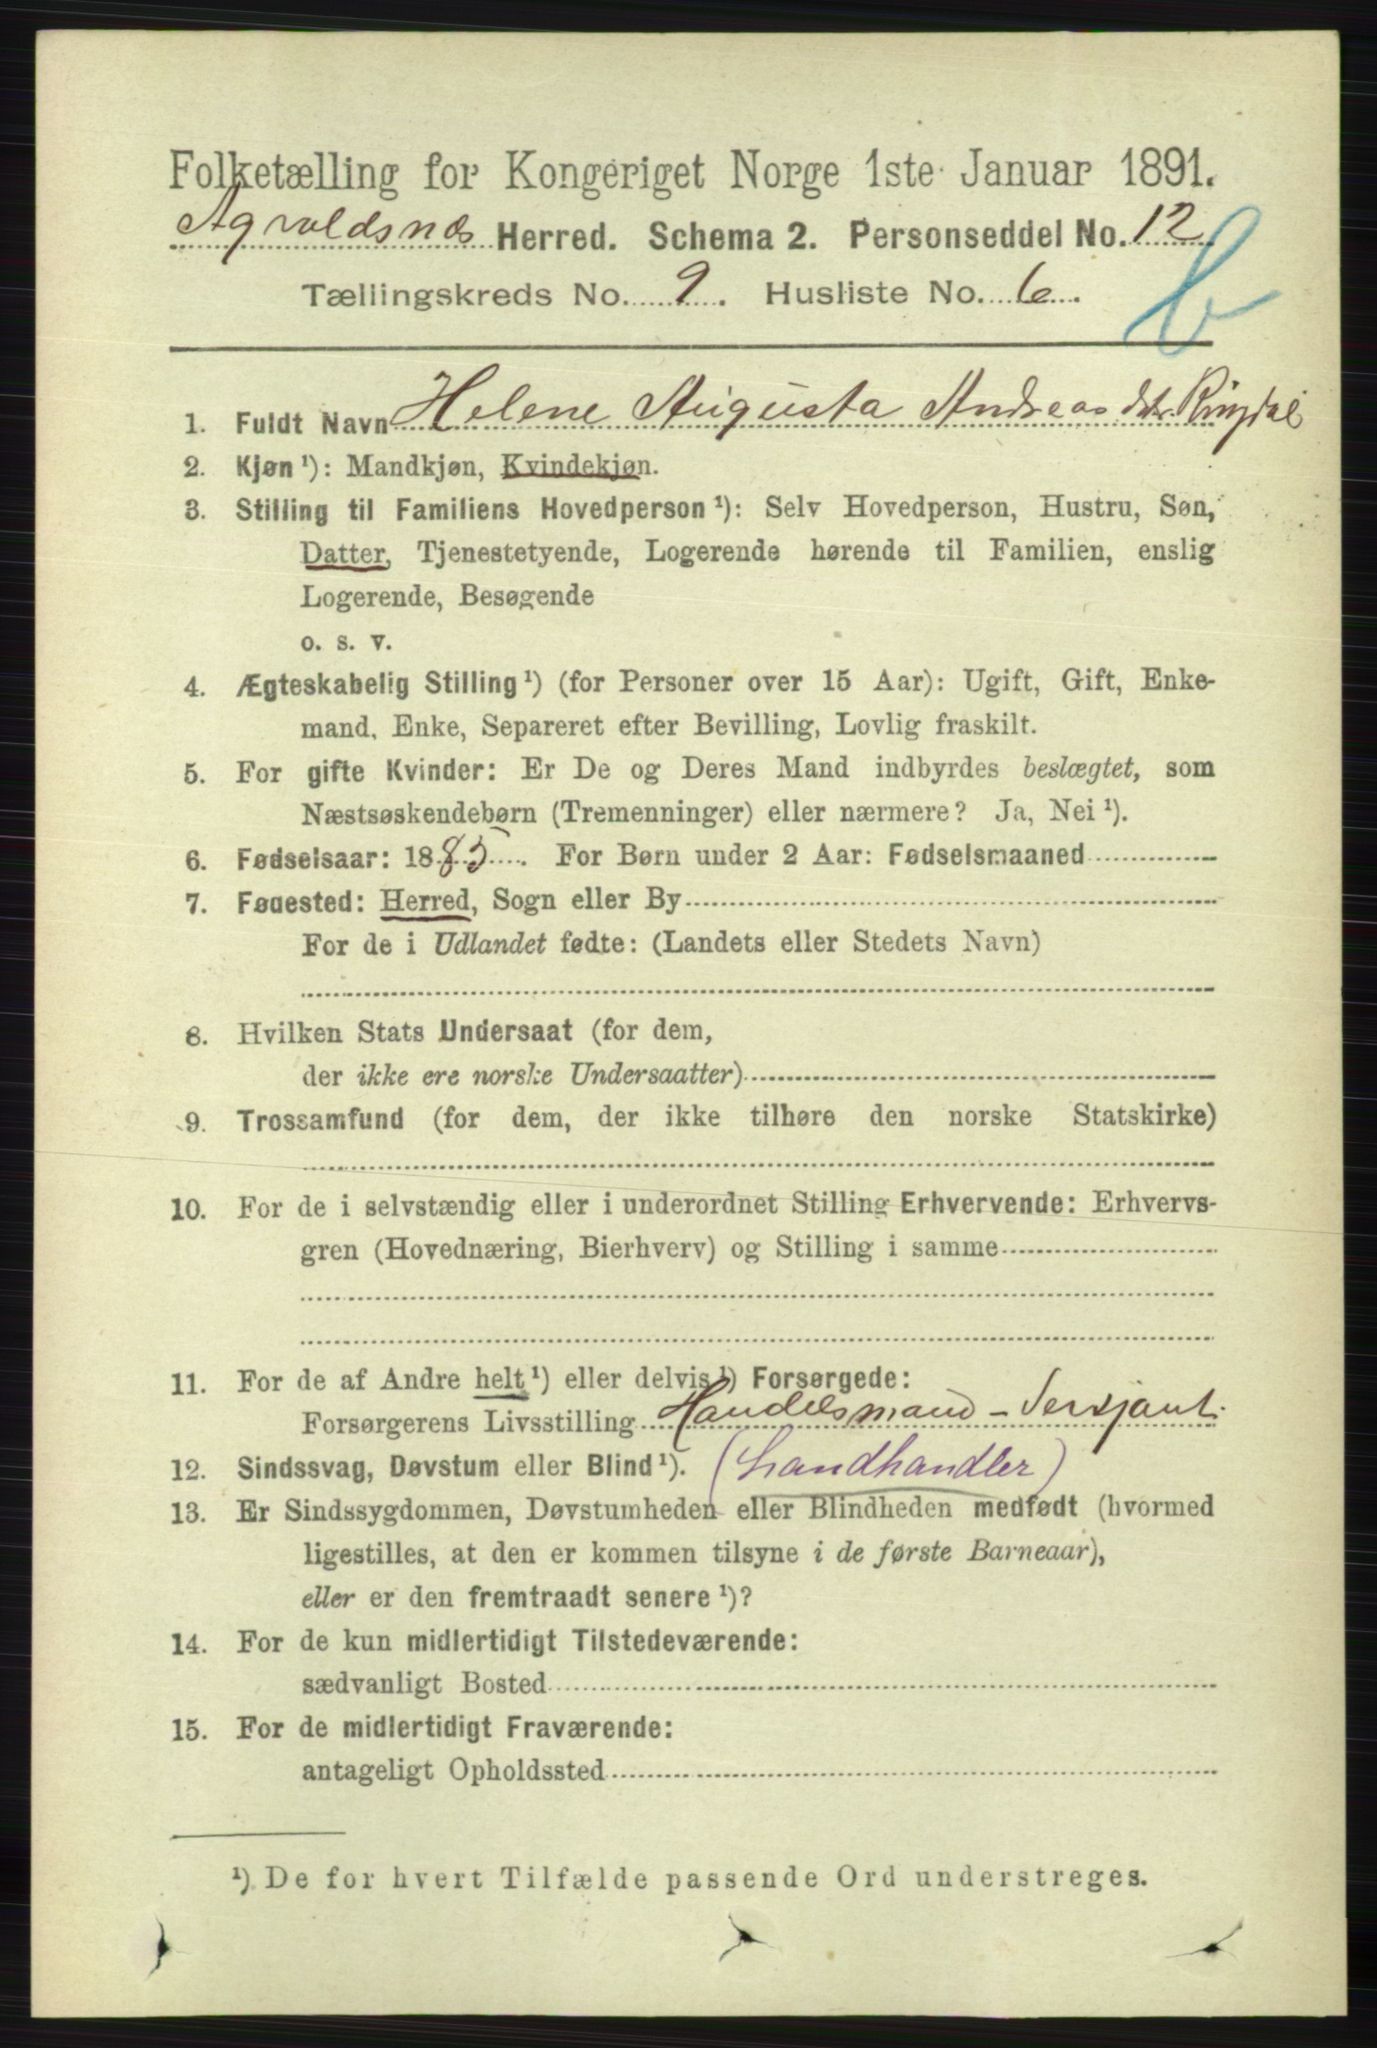 Folketælling for Kongeriget Norge 1ste Januar 1891.
Agvaldsnæs Herred. Schema 2. Personseddel No. 12
Tællingskreds No. 9. Husliste No. 6.
b
1. Fuldt Navn Helene Augusta Andreasdtr. Ringdal
2. Kjøn ¹): Mandkjøn, Kvindekjøn.
3. Stilling til Familiens Hovedperson ¹): Selv Hovedperson, Hustru, Søn,
Datter, Tjenestetyende, Logerende hørende til Familien, enslig
Logerende, Besøgende
o. s. v.
4. Ægteskabelig Stilling ¹) (for Personer over 15 Aar): Ugift, Gift, Enke-
mand, Enke, Separeret efter Bevilling, Lovlig fraskilt.
5. For gifte Kvinder: Er De og Deres Mand indbyrdes beslægtet, som
Næstsøskendebørn (Tremenninger) eller nærmere? Ja, Nei ¹).
6. Fødselsaar: 1885. For Børn under 2 Aar: Fødselsmaaned
7. Fødested: Herred, Sogn eller By
For de i Udlandet fødte: (Landets eller Stedets Navn)
8. Hvilken Stats Undersaat (for dem,
der ikke ere norske Undersaatter)
9. Trossamfund (for dem, der ikke tilhøre den norske Statskirke)
10. For de i selvstændig eller i underordnet Stilling Erhvervende: Erhvervs-
gren (Hovednæring, Bierhverv) og Stilling i samme
11. For de af Andre helt ¹) eller delvis ¹) Forsørgede:
Forsørgerens Livsstilling Handelsmand - Sersjant.
12. Sindssvag, Døvstum eller Blind ¹). (Landhandler)
13. Er Sindssygdommen, Døvstumheden eller Blindheden medfødt (hvormed
ligestilles, at den er kommen tilsyne i de første Barneaar),
eller er den fremtraadt senere ¹)?
14. For de kun midlertidigt Tilstedeværende:
sædvanligt Bosted
15. For de midlertidigt Fraværende:
antageligt Opholdssted
¹) De for hvert Tilfælde passende Ord understreges.